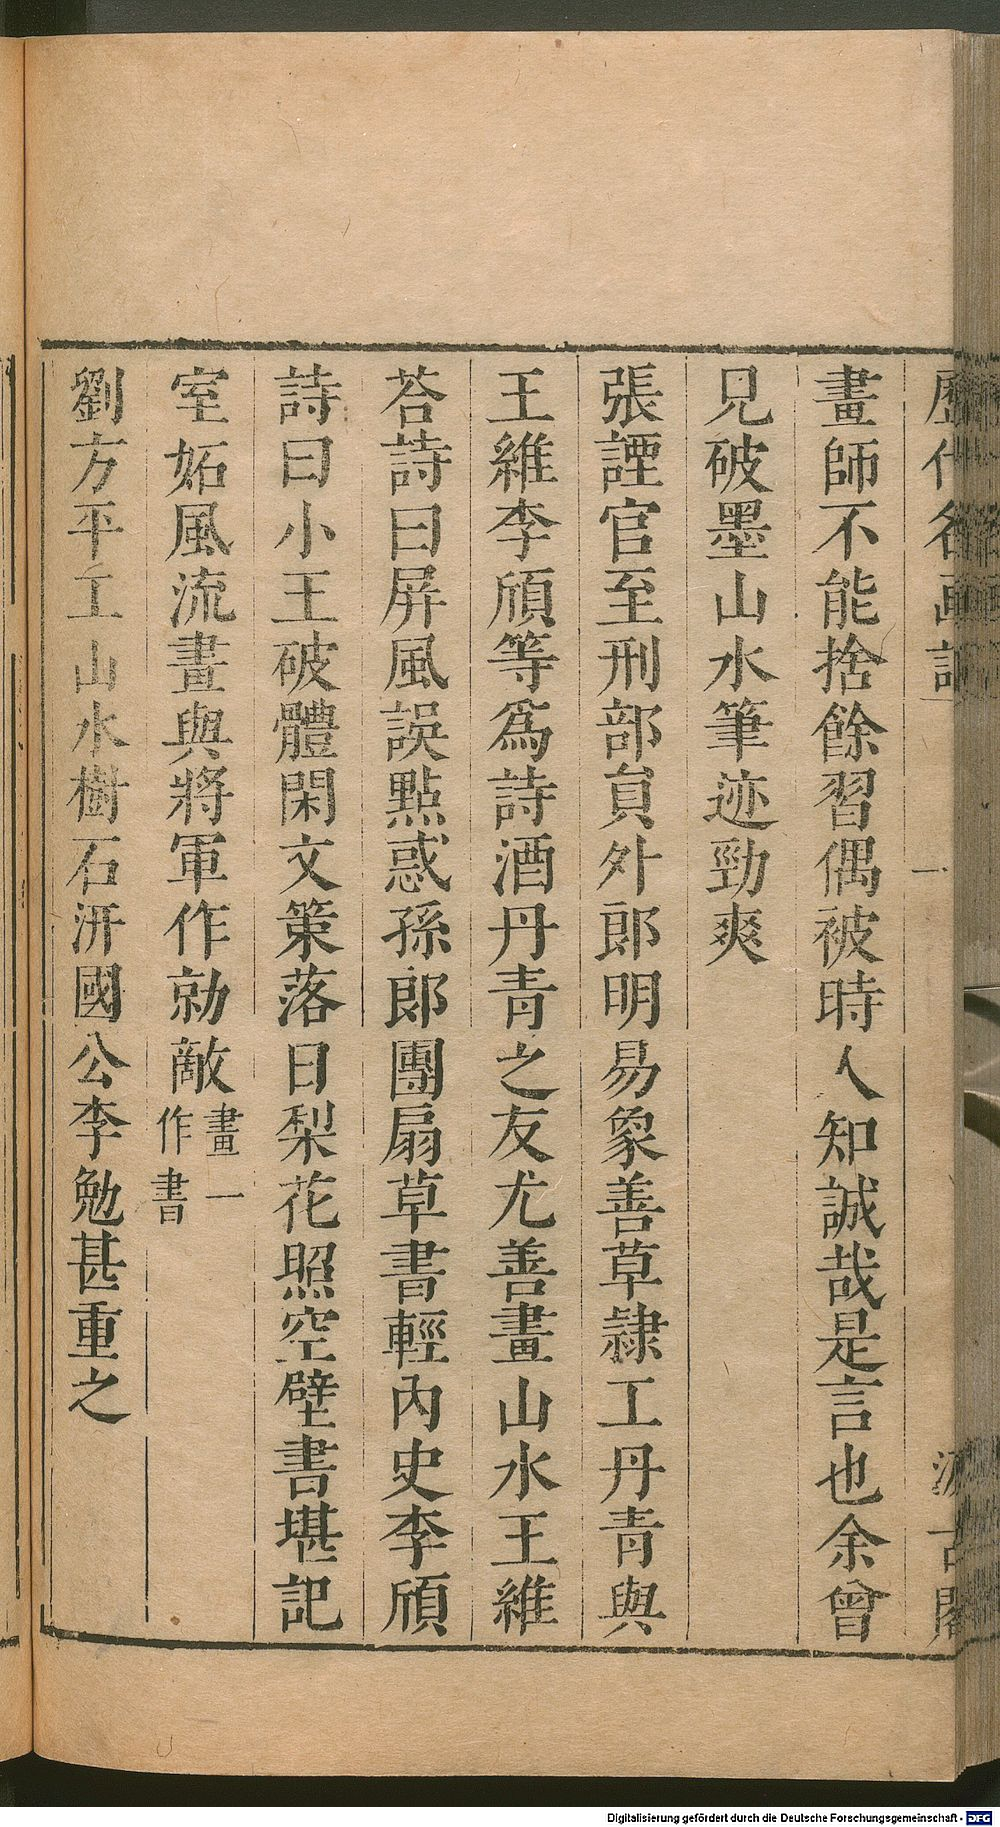 畫師不能捨餘習偶被時人知誠哉是言也余曾
見破墨山水筆迹勁爽
張諲官至刑部員外郎明易象善草隷工丹青與
王維李頎等爲詩酒丹青之友尤善畫山水王維
荅詩曰屏風誤點惑孫郎團扇草書輕內史李頎
詩曰小王破體閑文策落日梨花照空壁書堪記
室妬風流畫與將軍作勍敵畫一
作書
劉方平工山水樹石汧國公李勉甚重之
Digitalisierung gefördert durch die Deutsche Forschungsgemeinschaft - DFG